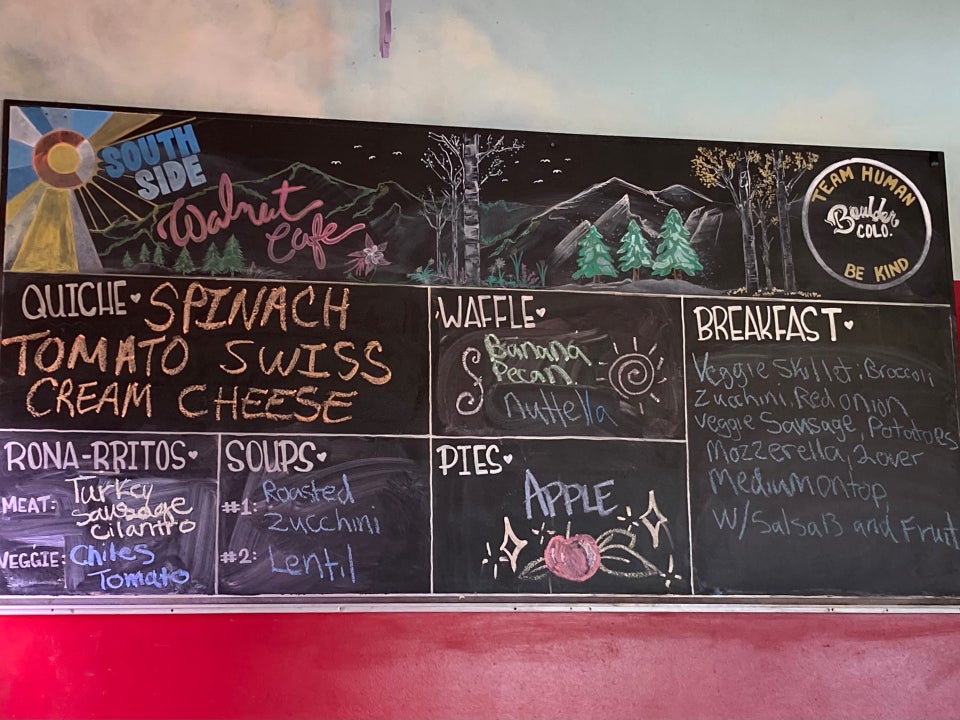 SOUTH
SIDE
Walnut
Cafe
TEAM HUMAN
Boulder
COLO.
BE KIND
QUICHE SPINACH
TOMATO SWISS
CREAM CHEESE
WAFFLE
Banana
Pecan
Nuttella
BREAKFAST
Veggie Skillet: Broccoli
Zucchini, Red onion
veggie Sausage, Potatoes
Mozzerella, 2 over
Medium on top,
W/ Salsa B and Fruit
RONA-RRITOS
MEAT: Turkey
Sausage
cilantro
VEGGIE: Chiles
Tomato
SOUPS
#1: Roasted
Zucchini
#2: Lentil
PIES
APPLE